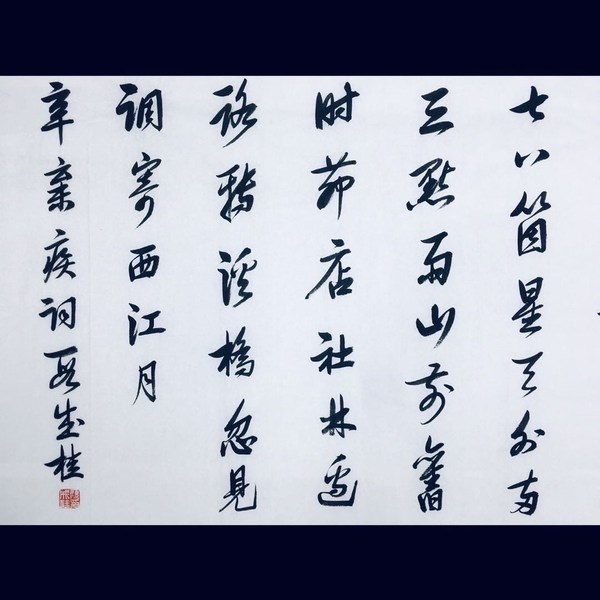 七八箇星天外两
三點雨山前舊
时茆店社林边
路轉溪橋忽見
调寄西江月
辛棄疾词段成桂